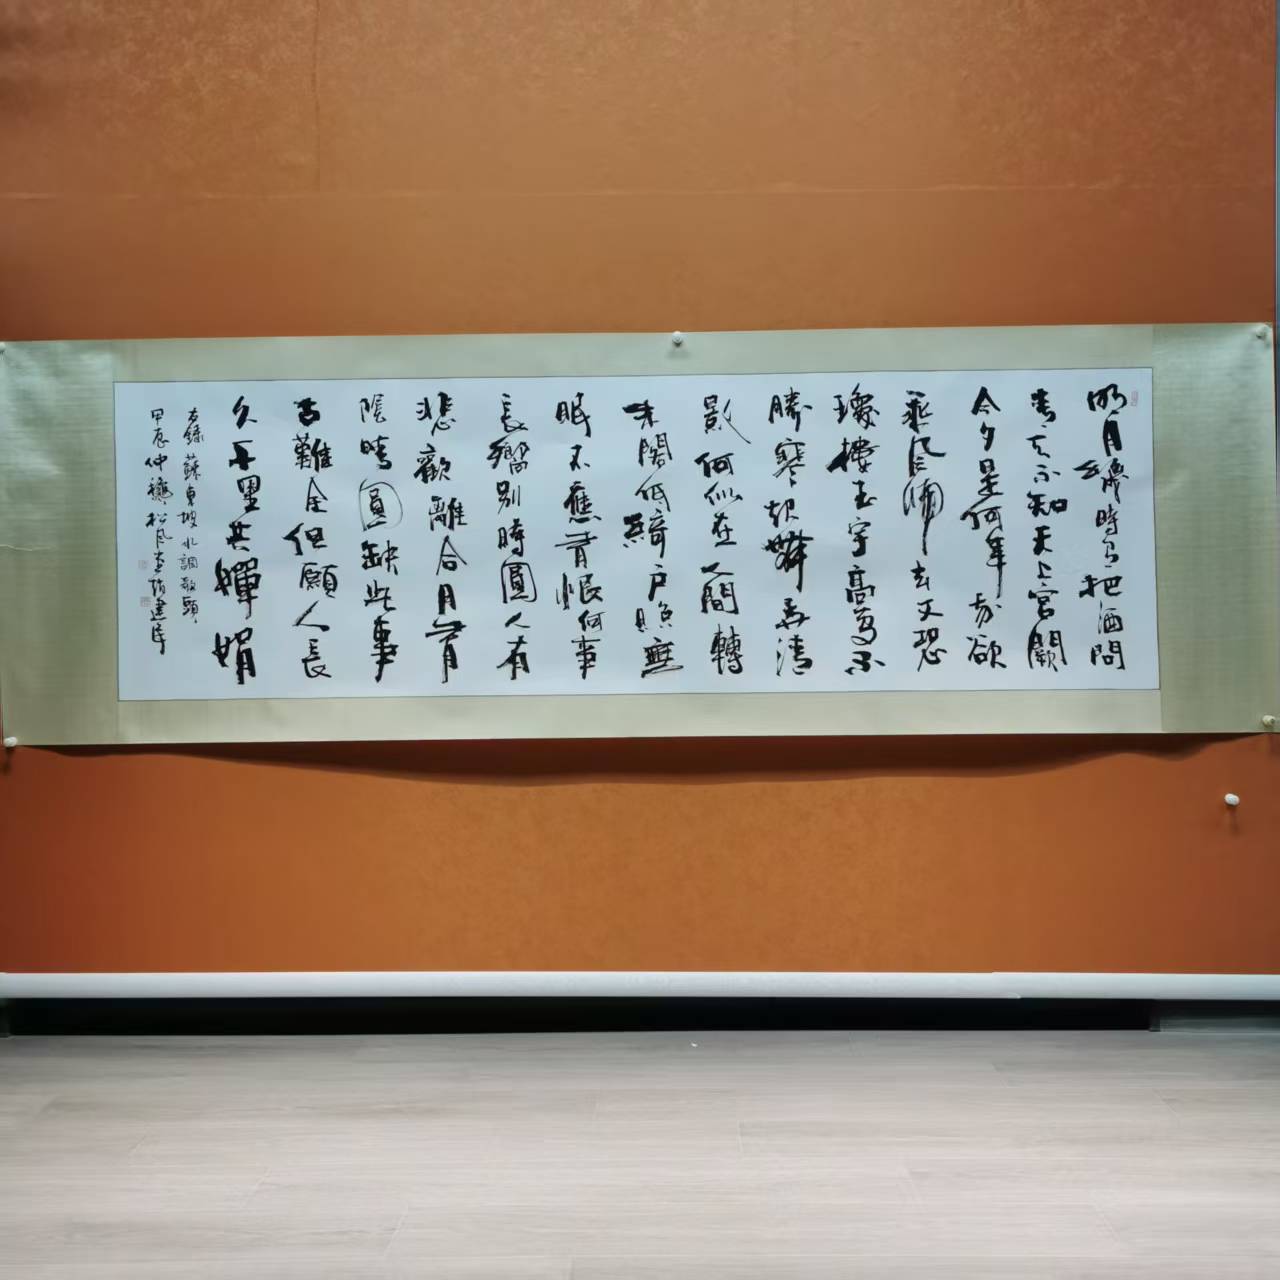 明月幾時有把酒問
青天不知天上宮闕
今夕是何年我欲
乘風歸去又恐
瓊樓玉宇高處不
勝寒起舞弄清
影何似在人間轉
朱閣低綺戶照無
眠不應有恨何事
長嚮別時圓人有
悲歡離合月有
陰晴圓缺此事
古難全但願人長
久千里共嬋娟
右錄蘇東坡水調歌頭
甲辰仲穐松風建